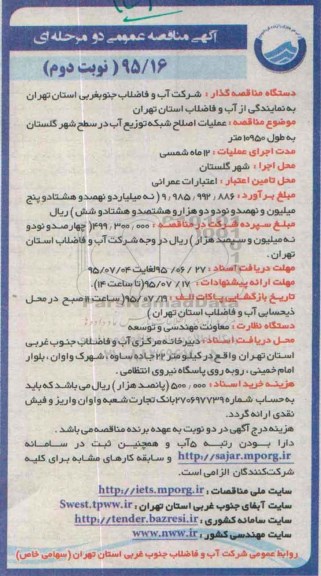 آگهی مناقصه عمومی دو مرحله ای
۹۵/۱۶ ( نوبت دوم)
دستگاه مناقصه گذار : شرکت آب و فاضلاب جنوبغربی استان تهران
به نمایندگی از آب و فاضلاب استان تهران
موضوع مناقصه : عملیات اصلاح شبکه توزیع آب در سطح شهر گلستان
به طول ۱۰۹۵۰ متر
مدت اجرای عملیات : ۱۲ ماه شمسی
محل اجرا : شهر گلستان
محل تامین اعتبار : اعتبارات عمرانی
مبلغ برآورد : ۹,۹۸۵,۹۹۲,۸۸۶ ( نه میلیاردو نهصدو هشتادو پنج
میلیون و نهصدو نودو دو هزار و هشتصدو هشتادو شش ) ریال
مبلغ سپرده شرکت در مناقصه : ۴۹۹,۳۰۰,۰۰۰ ( چهارصدو نودو
نه میلیون و سیصد هزار ) ریال در وجه شرکت آب و فاضلاب استان
تهران .
مهلت دریافت اسناد : ۲۷ / ۰۶ / ۹۵ لغایت ۹۵/۰۷/۰۴
مهلت ارائه پیشنهادات : ۱۷ / ۰۷ / ۹۵ (تا ساعت ۱۴).
تاریخ بازگشایی پاکات الف : ۹۵/۰۷/۱۹ ( ساعت ۹ صبح در محل
ذیحسابی آب و فاضلاب استان تهران )
دستگاه نظارت : معاونت مهندسی و توسعه
محل دریافت اسناد : دبیرخانه مرکزی آب و فاضلاب جنوب غربی
استان تهران واقع در کیلو متر ۲۲ جاده ساوه ، شهرک واوان ، بلوار
امام خمینی ، روبه روی پاسگاه نیروی انتظامی .
هزینه خرید اسناد : ۵۰۰,۰۰۰ (پانصد هزار ) ریال می باشد که باید
به حساب شماره ۲۷۰۶۹۷۷۳۹ بانک تجارت شعبه واوان واریز و فیش
نقدی ارائه گردد.
هزینه درج آگهی در دو نوبت به عهده برنده مناقصه می باشد .
دارا بودن رتبه ۵ آب و همچنین ثبت در سامانه
http://sajar.mporg.ir و سابقه کارهای مشابه برای کلیه
شرکت کنندگان الزامی است.
سایت ملی مناقصات : http://iets.mporg.ir
سایت آبفای جنوب غربی استان تهران : Swest.tpww.ir
سایت سامانه کشوری : http://tender.bazresi.ir
سایت مهندسی کشور : www.nww.ir
روابط عمومی شرکت آب و فاضلاب جنوب غربی استان تهران (سهامی خاص)